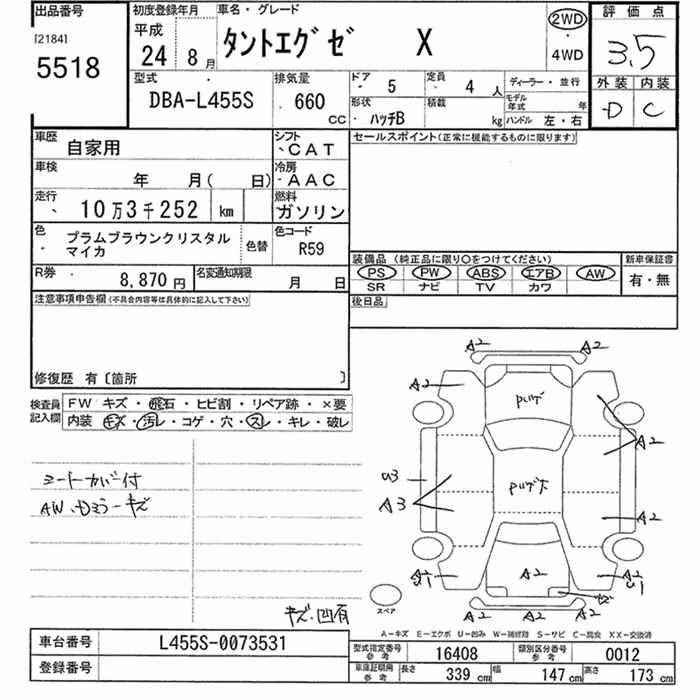 出品番号
[2184]
5518
初度登録年月
平成
24 8月
車名・グレード
タントエグゼ X
2WD
4WD
評価点
3.5
外装 内装
D C
型式
DBA-L455S
排気量
660 CC
ドア 5
形状 ハッチB
定員 4 人
積載 kg
ディーラー・並行
モデル年式 年
ハンドル 左・右
車歴 自家用
シフト CAT
車検 年 月( 日)
冷房 AAC
走行 10万3千252 km
燃料 ガソリン
色 プラムブラウンクリスタルマイカ
色替
色コード R59
R券 8,870円
名変通知期限 月 日
セールスポイント(正常に機能するものに限ります)
装備品 (純正品に限り○をつけてください)
PS PW ABS エアB AW
SR ナビ TV カワ
新車保証書
有・無
後日品
注意事項申告欄(不具合内容等は具体的に記入して下さい)
修復歴 有〔箇所 〕
検査員記入欄
FW キズ・飛石・ヒビ割・リペア跡・×要
内装 キズ・汚レ・コゲ・穴・スレ・キレ・破レ
シートカバー付
AW、Dミラーキズ
キズ、凹有
A2 A2
A2
A2
U3
A3
A2
A2
A2
A2 A2
スペア
A-キズ E-エクボ U-凹み W-補修跡 S-サビ C-腐食 XX-交換済
車台番号 L455S-0073531
登録番号
型式指定番号 参考 16408
類別区分番号 参考 0012
車庫証明用 参考 長さ 339 cm 幅 147 cm 高さ 173 cm